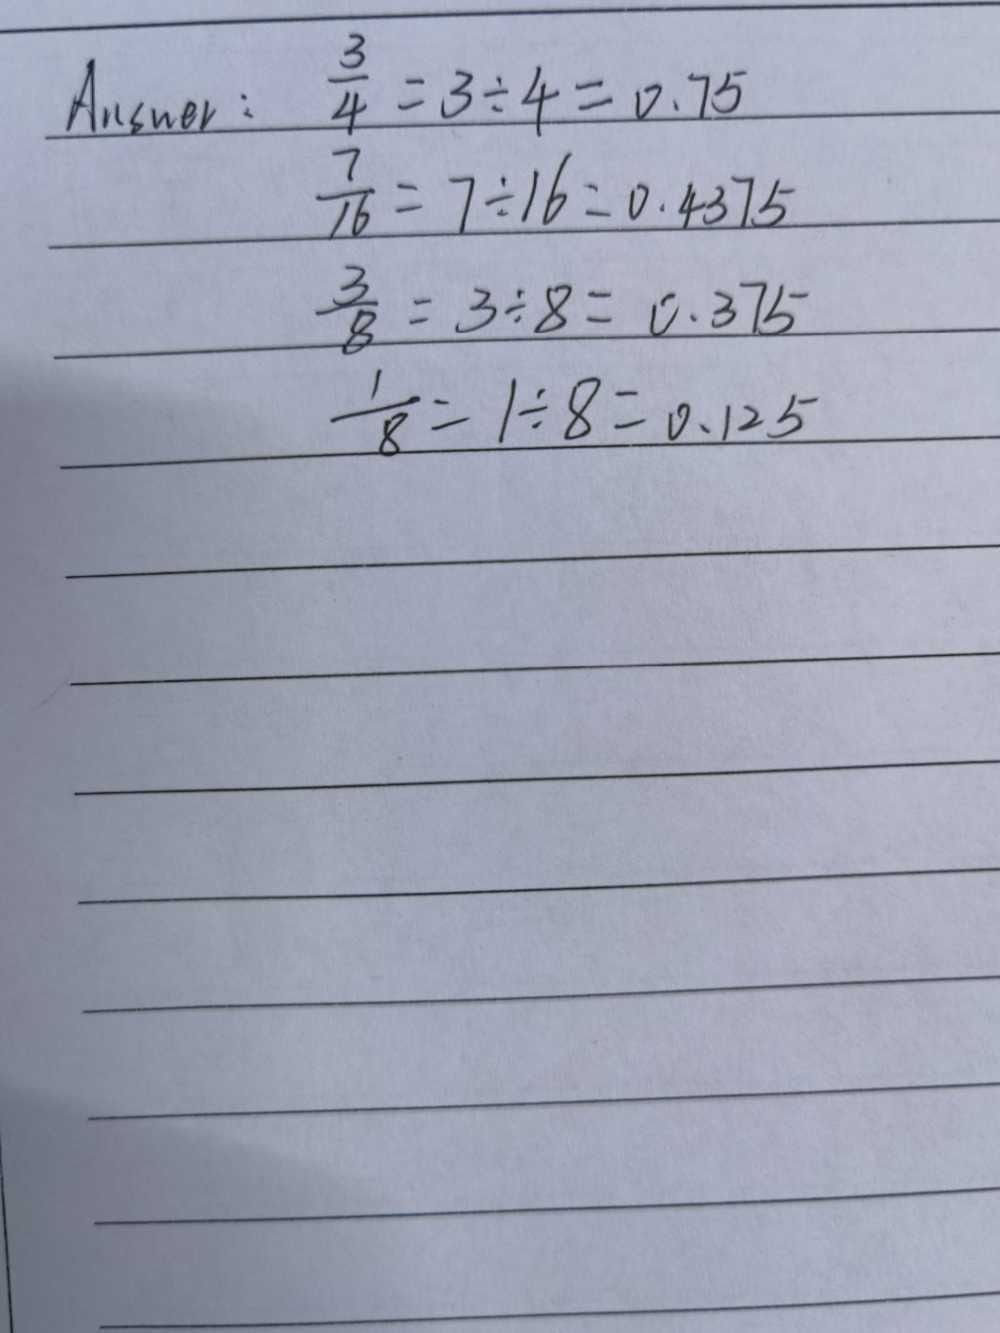 Answer: 3/4 = 3÷4 = 0.75
7/16 = 7÷16 = 0.4375
3/8 = 3÷8 = 0.375
1/8 = 1÷8 = 0.125